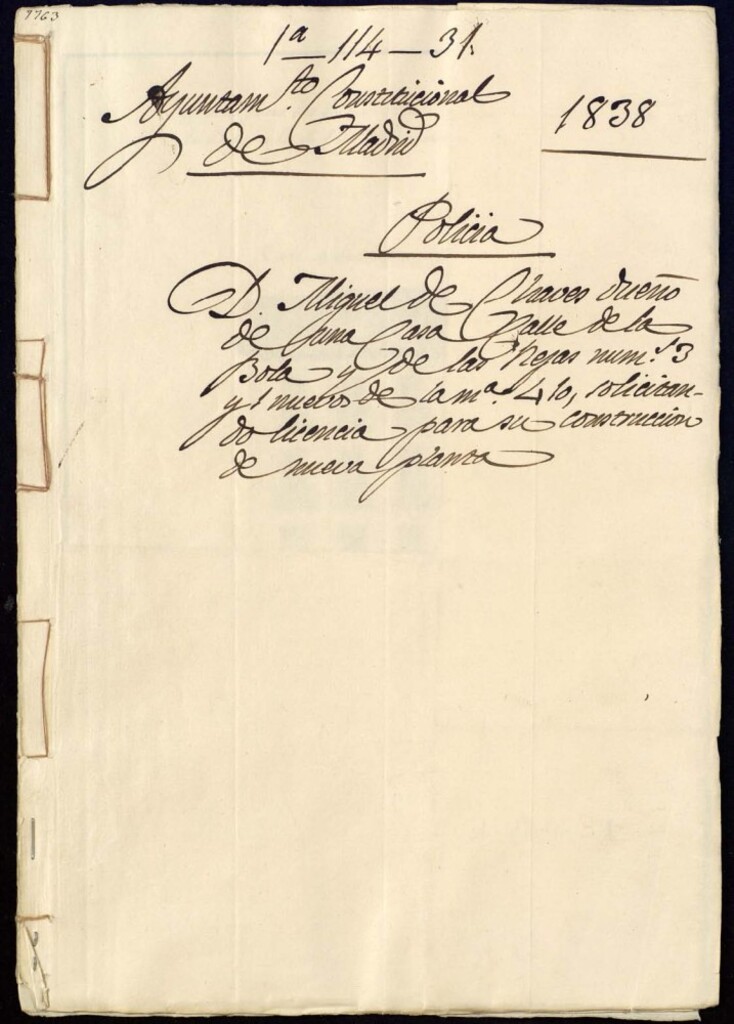 7763
1ª — 114 — 31.
Ayuntamto. Constitucional
de Madrid
1838
Policia
D. Miguel de Chaves dueño
de una Casa Calle de la
Bola y de las Rejas num.s 3
y 1 nuevos de la mª. 410, solicitan-
do licencia para su construccion
de nueva planta